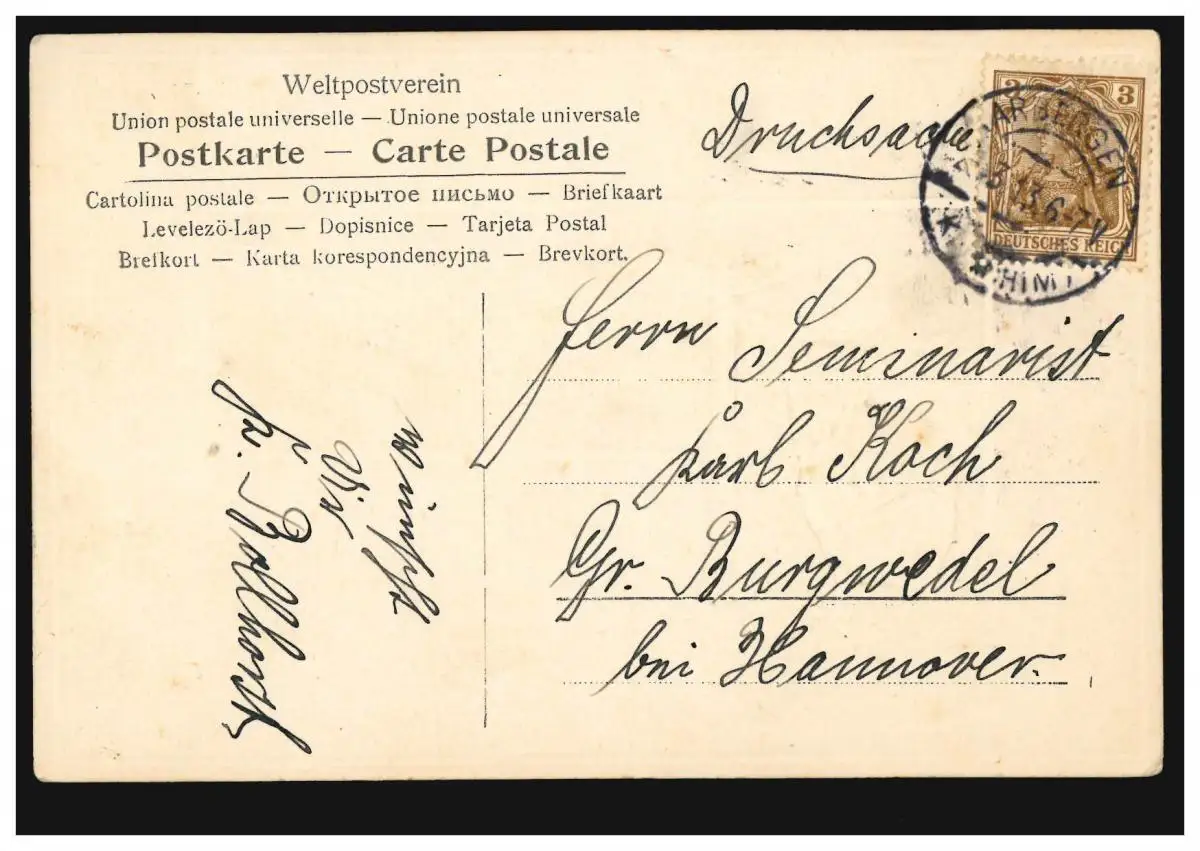 Weltpostverein
Union postale universelle — Unione postale universale
Postkarte — Carte Postale
Cartolina postale — Открытое письмо — Briefkaart
Levelezö-Lap — Dopisnice — Tarjeta Postal
Brefkort — Karta korespondencyjna — Brevkort.
Drucksache
3 3
DEUTSCHES REICH
BERGEN
6-7
Herrn Seminarist
Karl Koch
Gr. Burgwedel
bei Hannover.
wünscht
Dir
Fr. Bollhorst